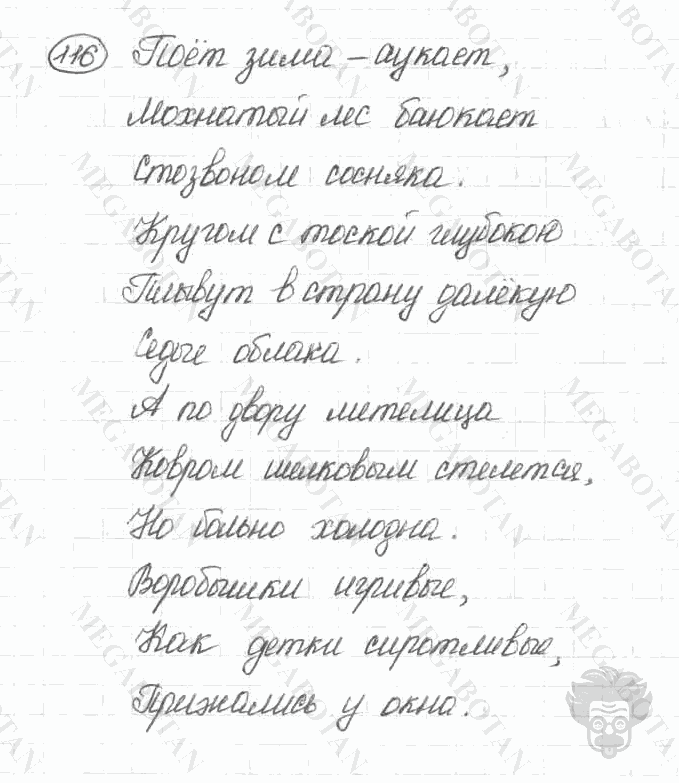 116 Поёт зима – аукает,
Мохнатый лес баюкает
Стозвоном сосняка.
Кругом с тоской глубокою
Плывут в страну далёкую
Седые облака.
А по двору метелица
Ковром шелковым стелется,
Но больно холодна.
Воробышки игривые,
Как детки сиротливые,
Прижались у окна.
MEGABOTAN